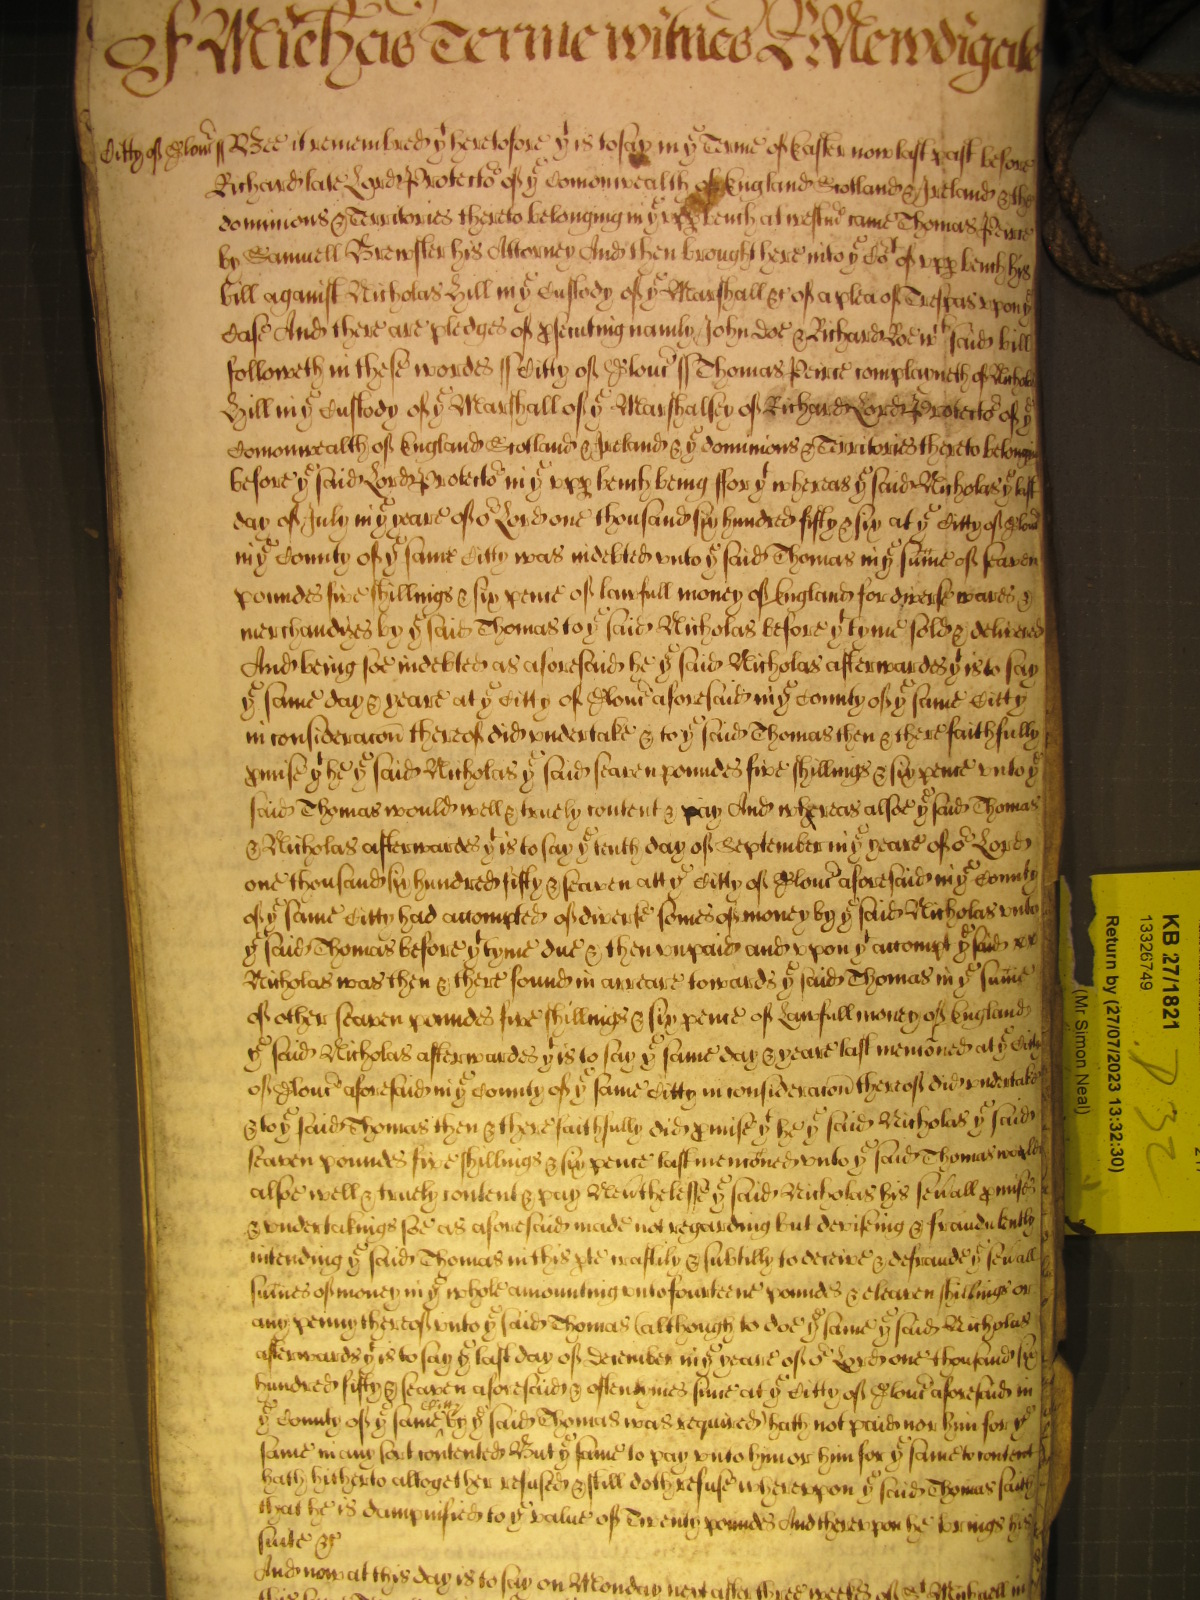 of Michas Terme witnes R: Newdigate
Citty of Glouc ss Bee it remembred yt heretofore yt is to say in ye Terme of Easter now last past before
Richard late Lord Protector of ye Comonwealth of England Scotland & Ireland & the
dominions & Territories thereto belonging in ye upp bench at westmr came Thomas Peirce
by Samuell Brewster his Attorney And then brought here into ye Cort of upp bench his
bill against Nicholas Hill in ye Custody of ye Marshall &c of a plea of Trespas upon ye
Case And there are pledges of psecuting namly John Doe & Richard Roe wch said bill
followeth in these wordes ss Citty of Glouc ss Thomas Peirce complayneth of Nicholas
Hill in ye Custody of ye Marshall of ye Marshalsey of Richard Lord Protector of ye
Comonwealth of England Scotland & Ireland & ye dominions & Territories thereto belonging
before ye said Lord Protector in ye upp bench being ffor yt whereas ye said Nicholas ye last
day of July in ye yeare of or Lord one thousand six hundred fifty & six at ye Citty of Glouc
in ye County of ye same Citty was indebted unto ye said Thomas in ye sume of seaven
poundes five shillings & six pence of lawfull money of England for diverse wares &
merchandizes by ye said Thomas to ye said Nicholas before yt tyme sold & delivered
And being soe indebted as aforesaid he ye said Nicholas afterwardes yt is to say
ye same day & yeare at ye Citty of Glouc aforesaid in ye County of ye same Citty
in consideracon thereof did undertake & to ye said Thomas then & there faithfully
pmise yt he ye said Nicholas ye said seaven poundes five shillings & six pence unto ye
said Thomas would well & truely content & pay And whereas alsoe ye said Thomas
& Nicholas afterwardes yt is to say ye tenth day of September in ye yeare of or Lord
one thousand six hundred fifty & seaven att ye Citty of Glouc aforesaid in ye County
of ye same Citty had accompted of diverse somes of money by ye said Nicholas unto
ye said Thomas before yt tyme due & then unpaid and upon yt accompt ye said
Nicholas was then & there found in arreare towards ye said Thomas in ye sume
of other seaven poundes five shillings & six pence of Lawfull money of England
ye said Nicholas afterwardes yt is to say ye same day & yeare last mencioned at ye Citty
of Glouc aforesaid in ye County of ye same Citty in consideracon thereof did undertake
& to ye said Thomas then & there faithfully did pmise yt he ye said Nicholas ye said
seaven poundes five shillings & six pence last mencioned unto ye said Thomas would
alsoe well & truely content & pay Neuthelesse ye said Nicholas his seuall pmises
& undertakings soe as aforesaid made not regarding but devising & fraudulently
intending ye said Thomas in this pte craftily & subtilly to deceive & defraude ye seuall
sumes of money in ye whole amounting unto fourteene poundes & eleaven shillings or
any penny thereof unto ye said Thomas (although to doe ye same ye said Nicholas
afterwards yt is to say ye last day of december in ye yeare of or Lord one thousand six
hundred fifty & seaven aforesaid & oftentymes since at ye Citty of Glouc aforesaid in
ye County of ye same Citty by ye said Thomas was required) hath not paid nor him for ye
same in any sort contented But ye same to pay unto him or him for ye same to content
hath hitherto altogether refused & still doth refuse whereupon ye said Thomas saith
that he is dampnified to ye value of Twenty poundes And thereupon he brings his
suite &c
And now at this day is to say on Monday next after three weekes of St Michaell in
KB 27/1821
13326749
Return by (27/07/2023 13:32:30)
(Mr Simon Neal)